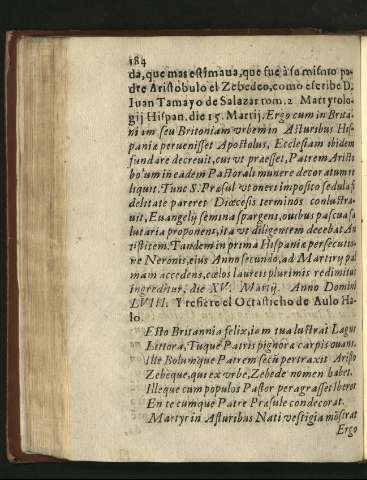 184
da, que mas estimaua, que fue à su mismo pa-
dre Aristobulo el Zebedeo, como escribe D.
Iuan Tamayo de Salazar tom. 2. Martyrolo-
gij Hispan. die 15. Martij. Ergo cum in Brita-
niam seu Britoniam vrbem in Asturibus His-
paniæ peruenisset Apostolus, Ecclesiam ibidem
fundare decreuit, cui vt praesset, Patrem Aristo
bolum in eadem Pastorali munere decoratum re
liquit. Tunc S. Præsul vt oneri imposito sedula fi
delitate pareret Diœcesis terminos conlustra-
uit, Euangelij semina spargens, ouibus pascua sa
lutaria proponens, ita vt diligentem decebat An
tistitem. Tandem in prima Hispaniæ persecutio-
ne Neronis, eius Anno secundo, ad Martyrij pal
mam accedens, cœlos laureis plurimis redimitus
ingreditur, die XV. Martij. Anno Domini
LVIII. Y refiere el Octasticho de Aulo Ha-
lo.
Esto Britannia felix, iam tua lustrat Lagus
Littora, Tuque Patris pignora carpis ouans.
Ille Bolumque Patrem secũ pertraxit Aristo
Zebeque, qui ex vrbe, Zebede nomen habet.
Illeque cum populos Pastor peragrasset Iberos
En te cumque Patre Præsule condecorat.
Martyr in Asturibus Nati vestigia mõstrat
Ergo